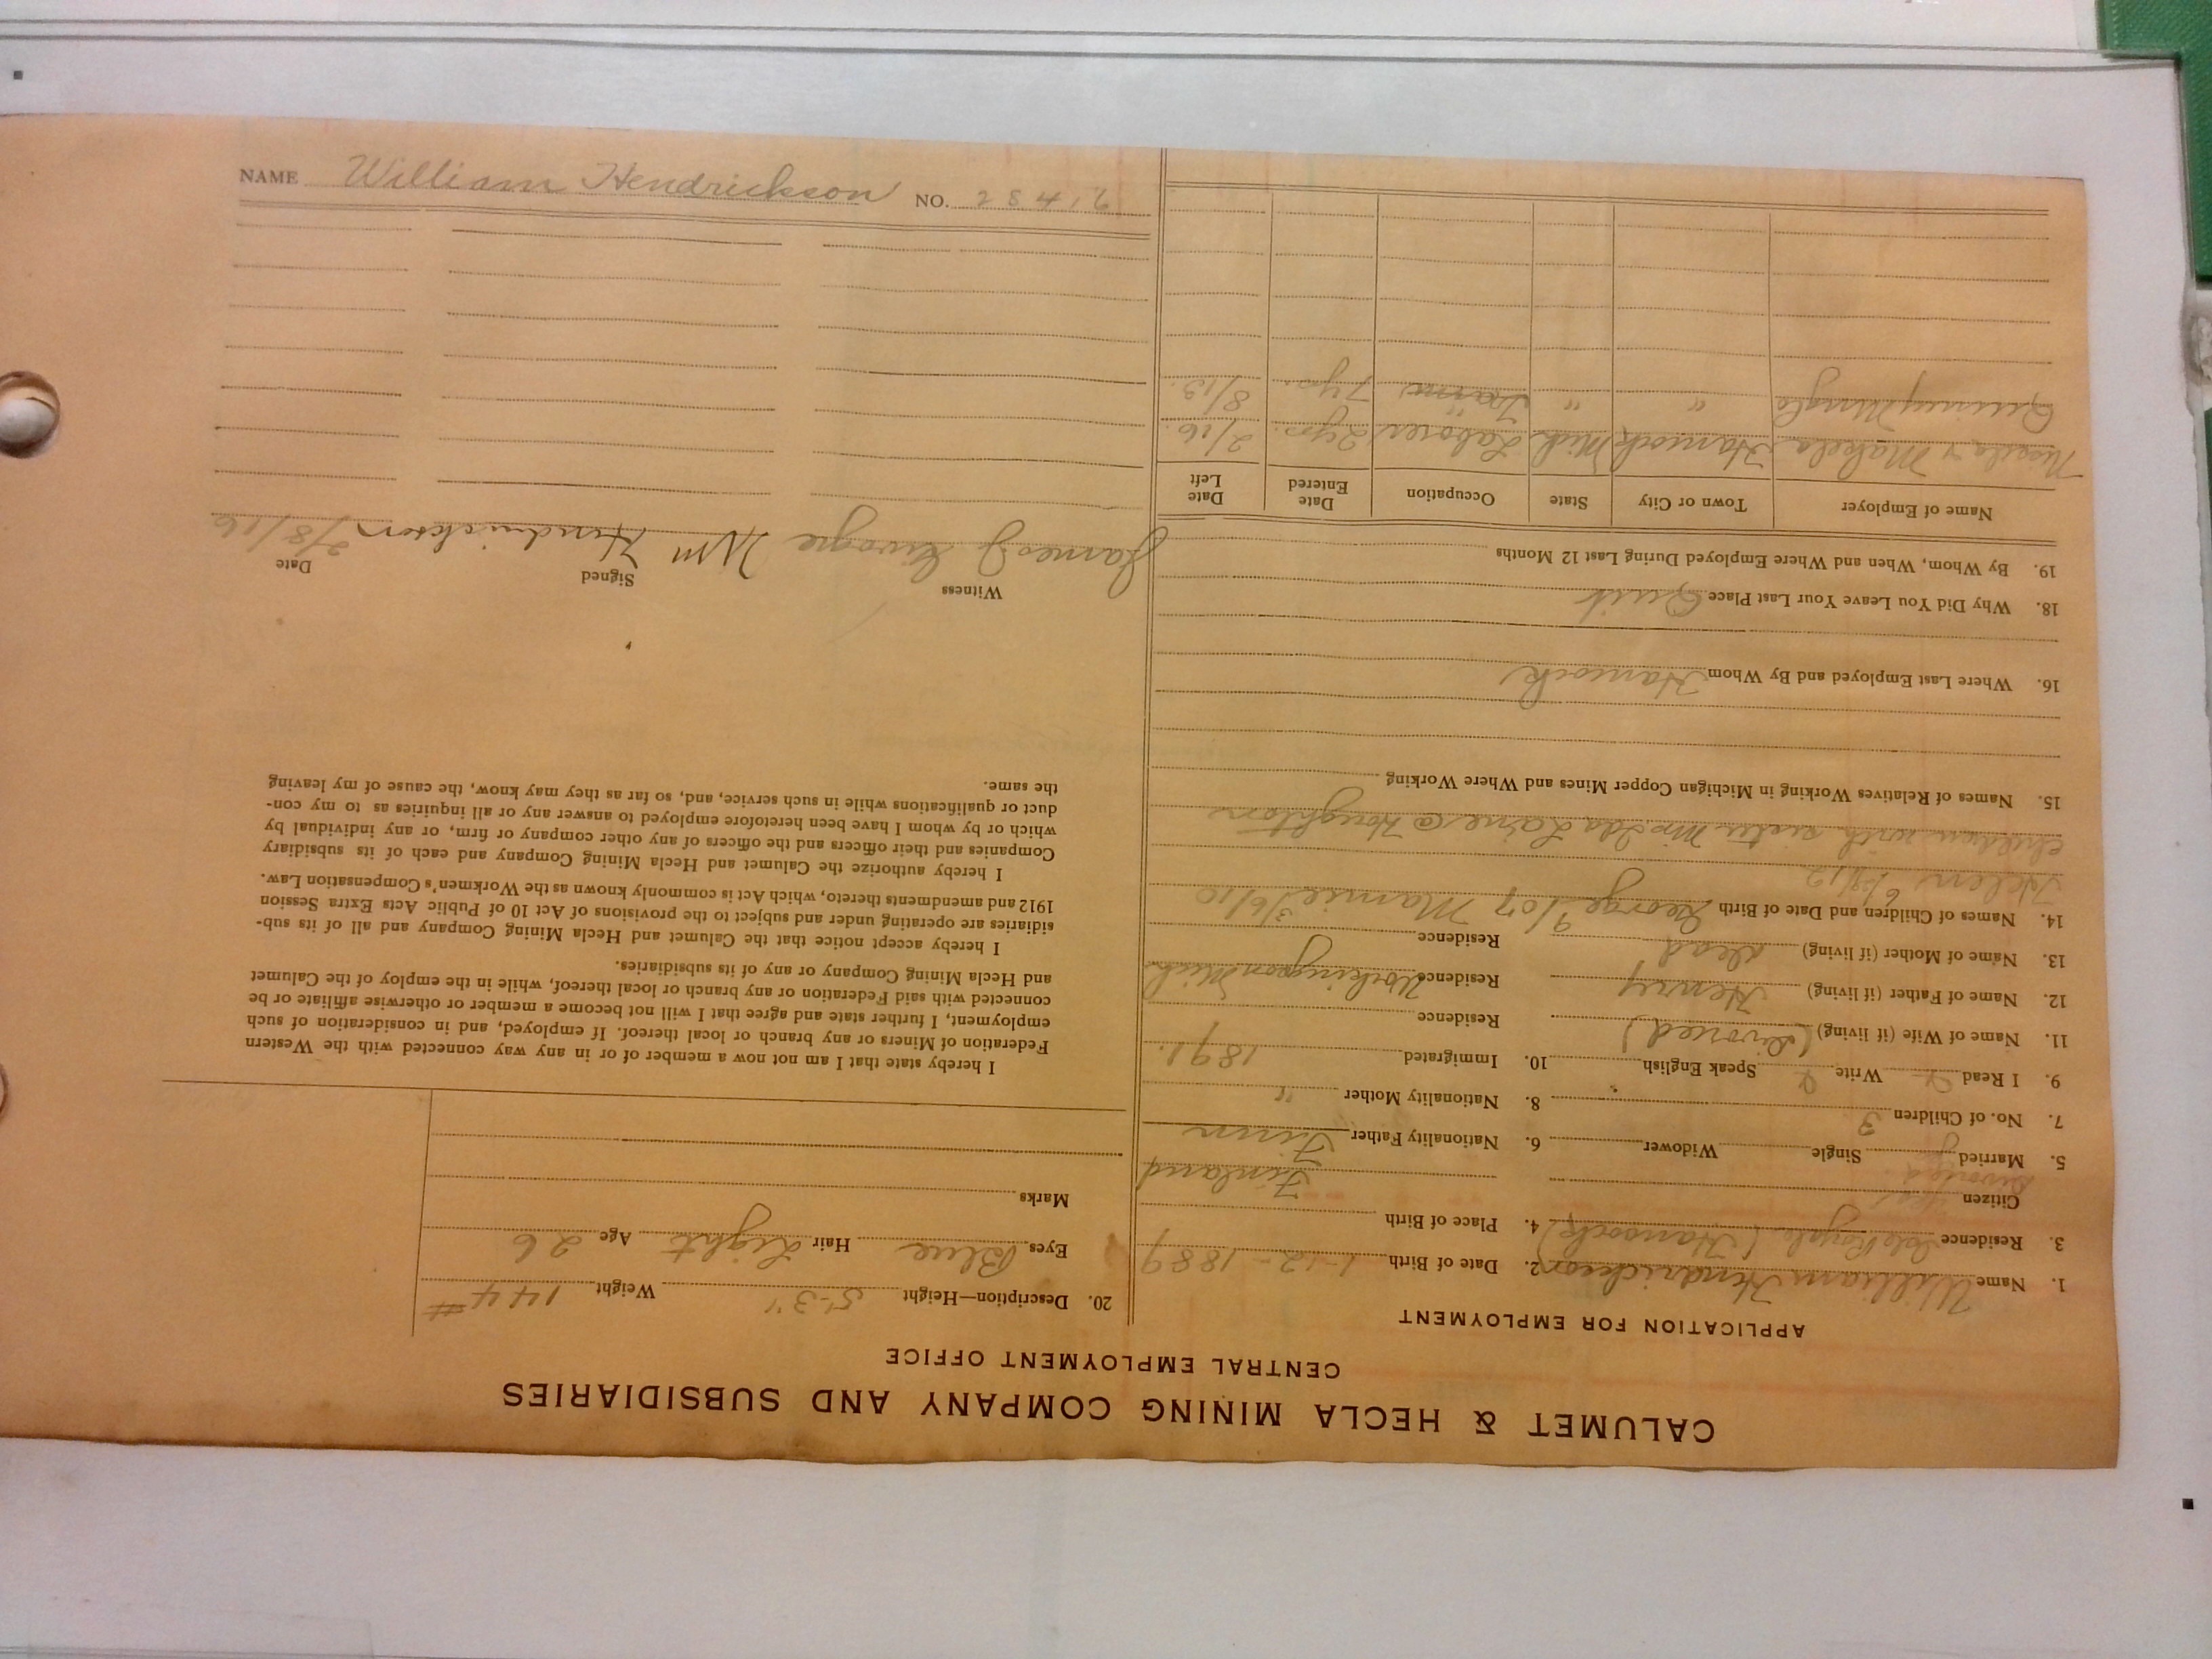 CALUMET & HECLA MINING COMPANY AND SUBSIDIARIES
CENTRAL EMPLOYMENT OFFICE
APPLICATION FOR EMPLOYMENT
1. Name William Hendrickson 2. Date of Birth 1-12-1889
3. Residence Isle Royale (Hancock) 4. Place of Birth
Citizen Yes Finland
Divorced
5. Married Single Widower 6. Nationality Father Finn
7. No. of Children 3 8. Nationality Mother "
9. I Read Write Speak English 10. Immigrated 1891.
11. Name of Wife (if living) (Divorced) Residence
12. Name of Father (if living) Henry Residence Mich
13. Name of Mother (if living) dead Residence
14. Names of Children and Date of Birth George 9/07 Mamie 3/6/10
Helen 6/29/12
children with sister Mrs Ida Laine @ Houghton
15. Names of Relatives Working in Michigan Copper Mines and Where Working
16. Where Last Employed and By Whom Hancock
18. Why Did You Leave Your Last Place Quit
19. By Whom, When and Where Employed During Last 12 Months
Name of Employer Town or City State Occupation Date Entered Date Left
& Makela Hancock Mich Laborer 2 yrs. 2/16.
Quincy " " 7 yrs. 8/13.
20. Description—Height 5'-3" Weight 144 #
Eyes Blue Hair Light Age 26
Marks
I hereby state that I am not now a member of or in any way connected with the Western
Federation of Miners or any branch or local thereof. If employed, and in consideration of such
employment, I further state and agree that I will not become a member or otherwise affiliate or be
connected with said Federation or any branch or local thereof, while in the employ of the Calumet
and Hecla Mining Company or any of its subsidiaries.
I hereby accept notice that the Calumet and Hecla Mining Company and all of its sub-
sidiaries are operating under and subject to the provisions of Act 10 of Public Acts Extra Session
1912 and amendments thereto, which Act is commonly known as the Workmen's Compensation Law.
I hereby authorize the Calumet and Hecla Mining Company and each of its subsidiary
Companies and their officers and the officers of any other company or firm, or any individual by
which or by whom I have been heretofore employed to answer any or all inquiries as to my con-
duct or qualifications while in such service, and, so far as they may know, the cause of my leaving
the same.
Witness Signed Date
James J Wm Hendrickson 2/8/16
NAME William Hendrickson NO.